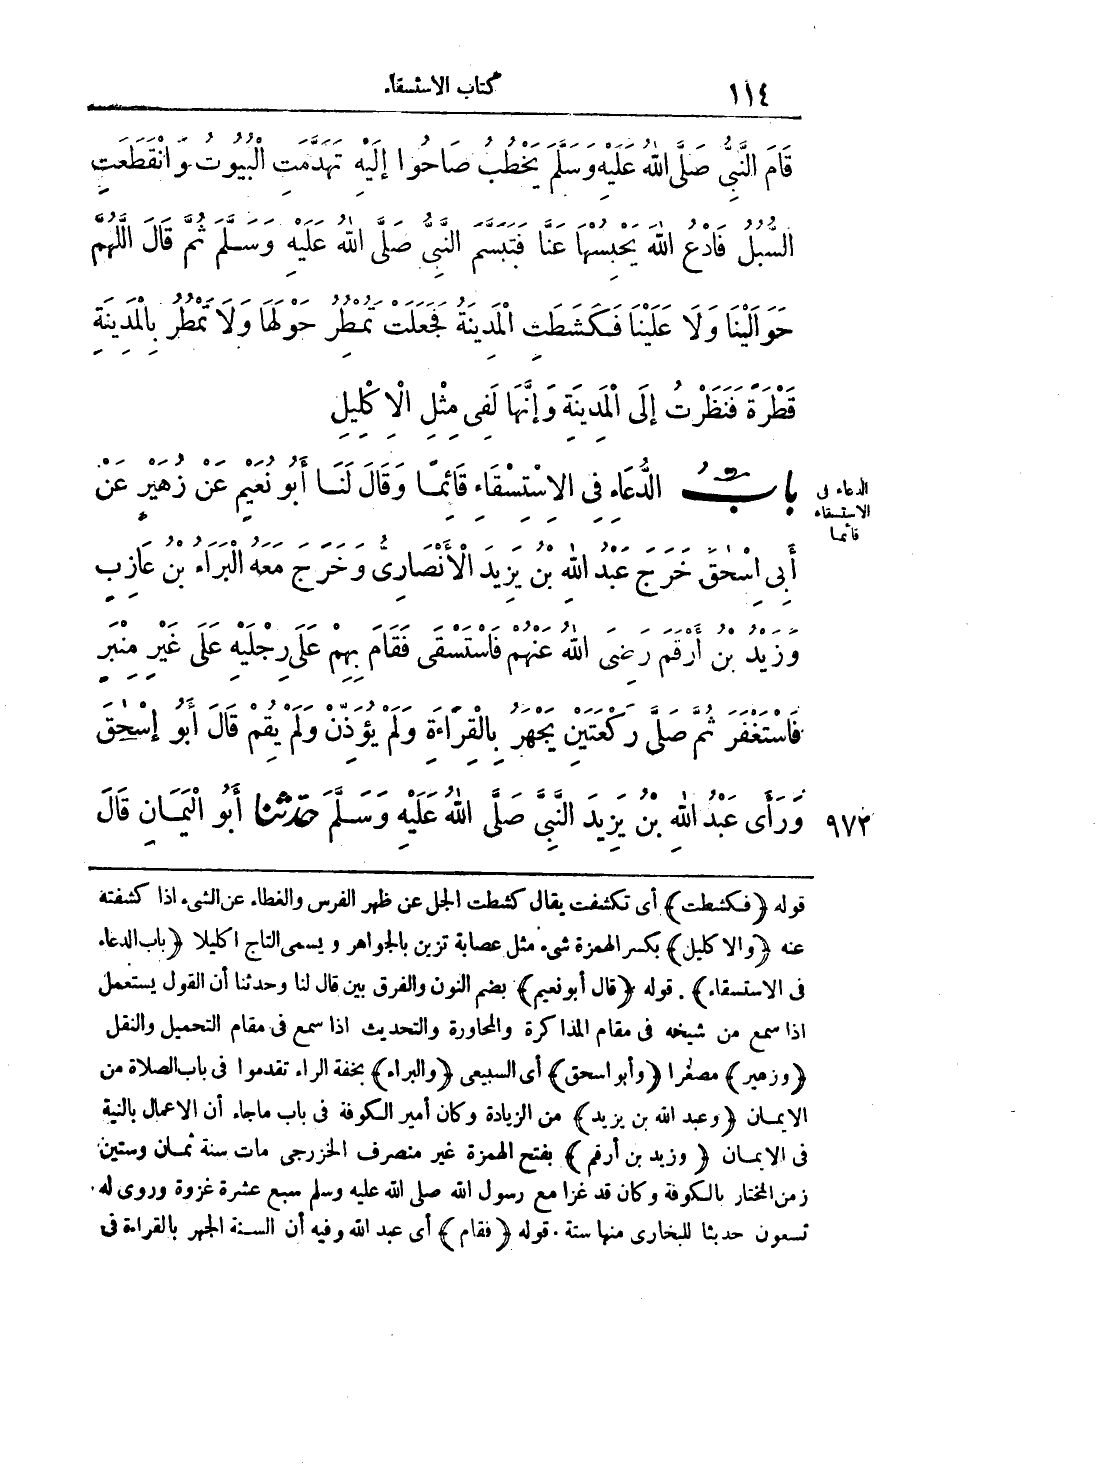 ١١٤
كتاب الاستسقاء
قَامَ النَّبِيُّ صَلَّى اللهُ عَلَيْهِ وَسَلَّمَ يَخْطُبُ صَاحُوا إِلَيْهِ تَهَدَّمَتِ الْبُيُوتُ وَانْقَطَعَتِ
السُّبُلُ فَادْعُ اللهَ يَحْبِسْهَا عَنَّا فَتَبَسَّمَ النَّبِيُّ صَلَّى اللهُ عَلَيْهِ وَسَلَّمَ ثُمَّ قَالَ اللَّهُمَّ
حَوَالَيْنَا وَلَا عَلَيْنَا فَكَشَطَتِ الْمَدِينَةُ فَجَعَلَتْ تَمْطُرُ حَوْلَهَا وَلَا تَمْطُرُ بِالْمَدِينَةِ
قَطْرَةً فَنَظَرْتُ إِلَى الْمَدِينَةِ وَإِنَّهَا لَفِي مِثْلِ الْإِكْلِيلِ
بَابُ الدُّعَاءِ فِي الِاسْتِسْقَاءِ قَائِمًا وَقَالَ لَنَا أَبُو نُعَيْمٍ عَنْ زُهَيْرٍ عَنْ
الدعاء فى
الاستسقاء
قائما
أَبِي إِسْحَقَ خَرَجَ عَبْدُ اللهِ بْنُ يَزِيدَ الْأَنْصَارِيُّ وَخَرَجَ مَعَهُ الْبَرَاءُ بْنُ عَازِبٍ
وَزَيْدُ بْنُ أَرْقَمَ رَضِيَ اللهُ عَنْهُمْ فَاسْتَسْقَى فَقَامَ بِهِمْ عَلَى رِجْلَيْهِ عَلَى غَيْرِ مِنْبَرٍ
فَاسْتَغْفَرَ ثُمَّ صَلَّى رَكْعَتَيْنِ يَجْهَرُ بِالْقِرَاءَةِ وَلَمْ يُؤَذِّنْ وَلَمْ يُقِمْ قَالَ أَبُو إِسْحَقَ
وَرَأَى عَبْدُ اللهِ بْنُ يَزِيدَ النَّبِيَّ صَلَّى اللهُ عَلَيْهِ وَسَلَّمَ حَدَّثَنَا أَبُو الْيَمَانِ قَالَ
٩٧٢
قوله ﴿فكشطت﴾ أى تكشفت يقال كشطت الجل عن ظهر الفرس والغطاء عن الشىء اذا كشفته
عنه ﴿والاكليل﴾ بكسر الهمزة شىء مثل عصابة تزين بالجواهر ويسمى التاج اكليلا ﴿باب الدعاء
فى الاستسقاء﴾ . قوله ﴿قال أبو نعيم﴾ بضم النون والفرق بين قال لنا وحدثنا أن القول يستعمل
اذا سمع من شيخه فى مقام المذاكرة والمحاورة والتحديث اذا سمع فى مقام التحميل والنقل
﴿وزهير﴾ مصغرا ﴿وأبو اسحق﴾ أى السبيعى ﴿والبراء﴾ بخفة الراء تقدموا فى باب الصلاة من
الايمان ﴿وعبد الله بن يزيد﴾ من الزيادة وكان أمير الكوفة فى باب ماجاء أن الاعمال بالنية
فى الايمان ﴿وزيد بن أرقم﴾ بفتح الهمزة غير منصرف الخزرجى مات سنة ثمان وستين
زمن المختار بالكوفة وكان قد غزا مع رسول الله صلى الله عليه وسلم سبع عشرة غزوة وروى له
تسعون حديثا للبخارى منها ستة . قوله ﴿فقام﴾ أى عبد الله وفيه أن السنة الجهر بالقراءة فى